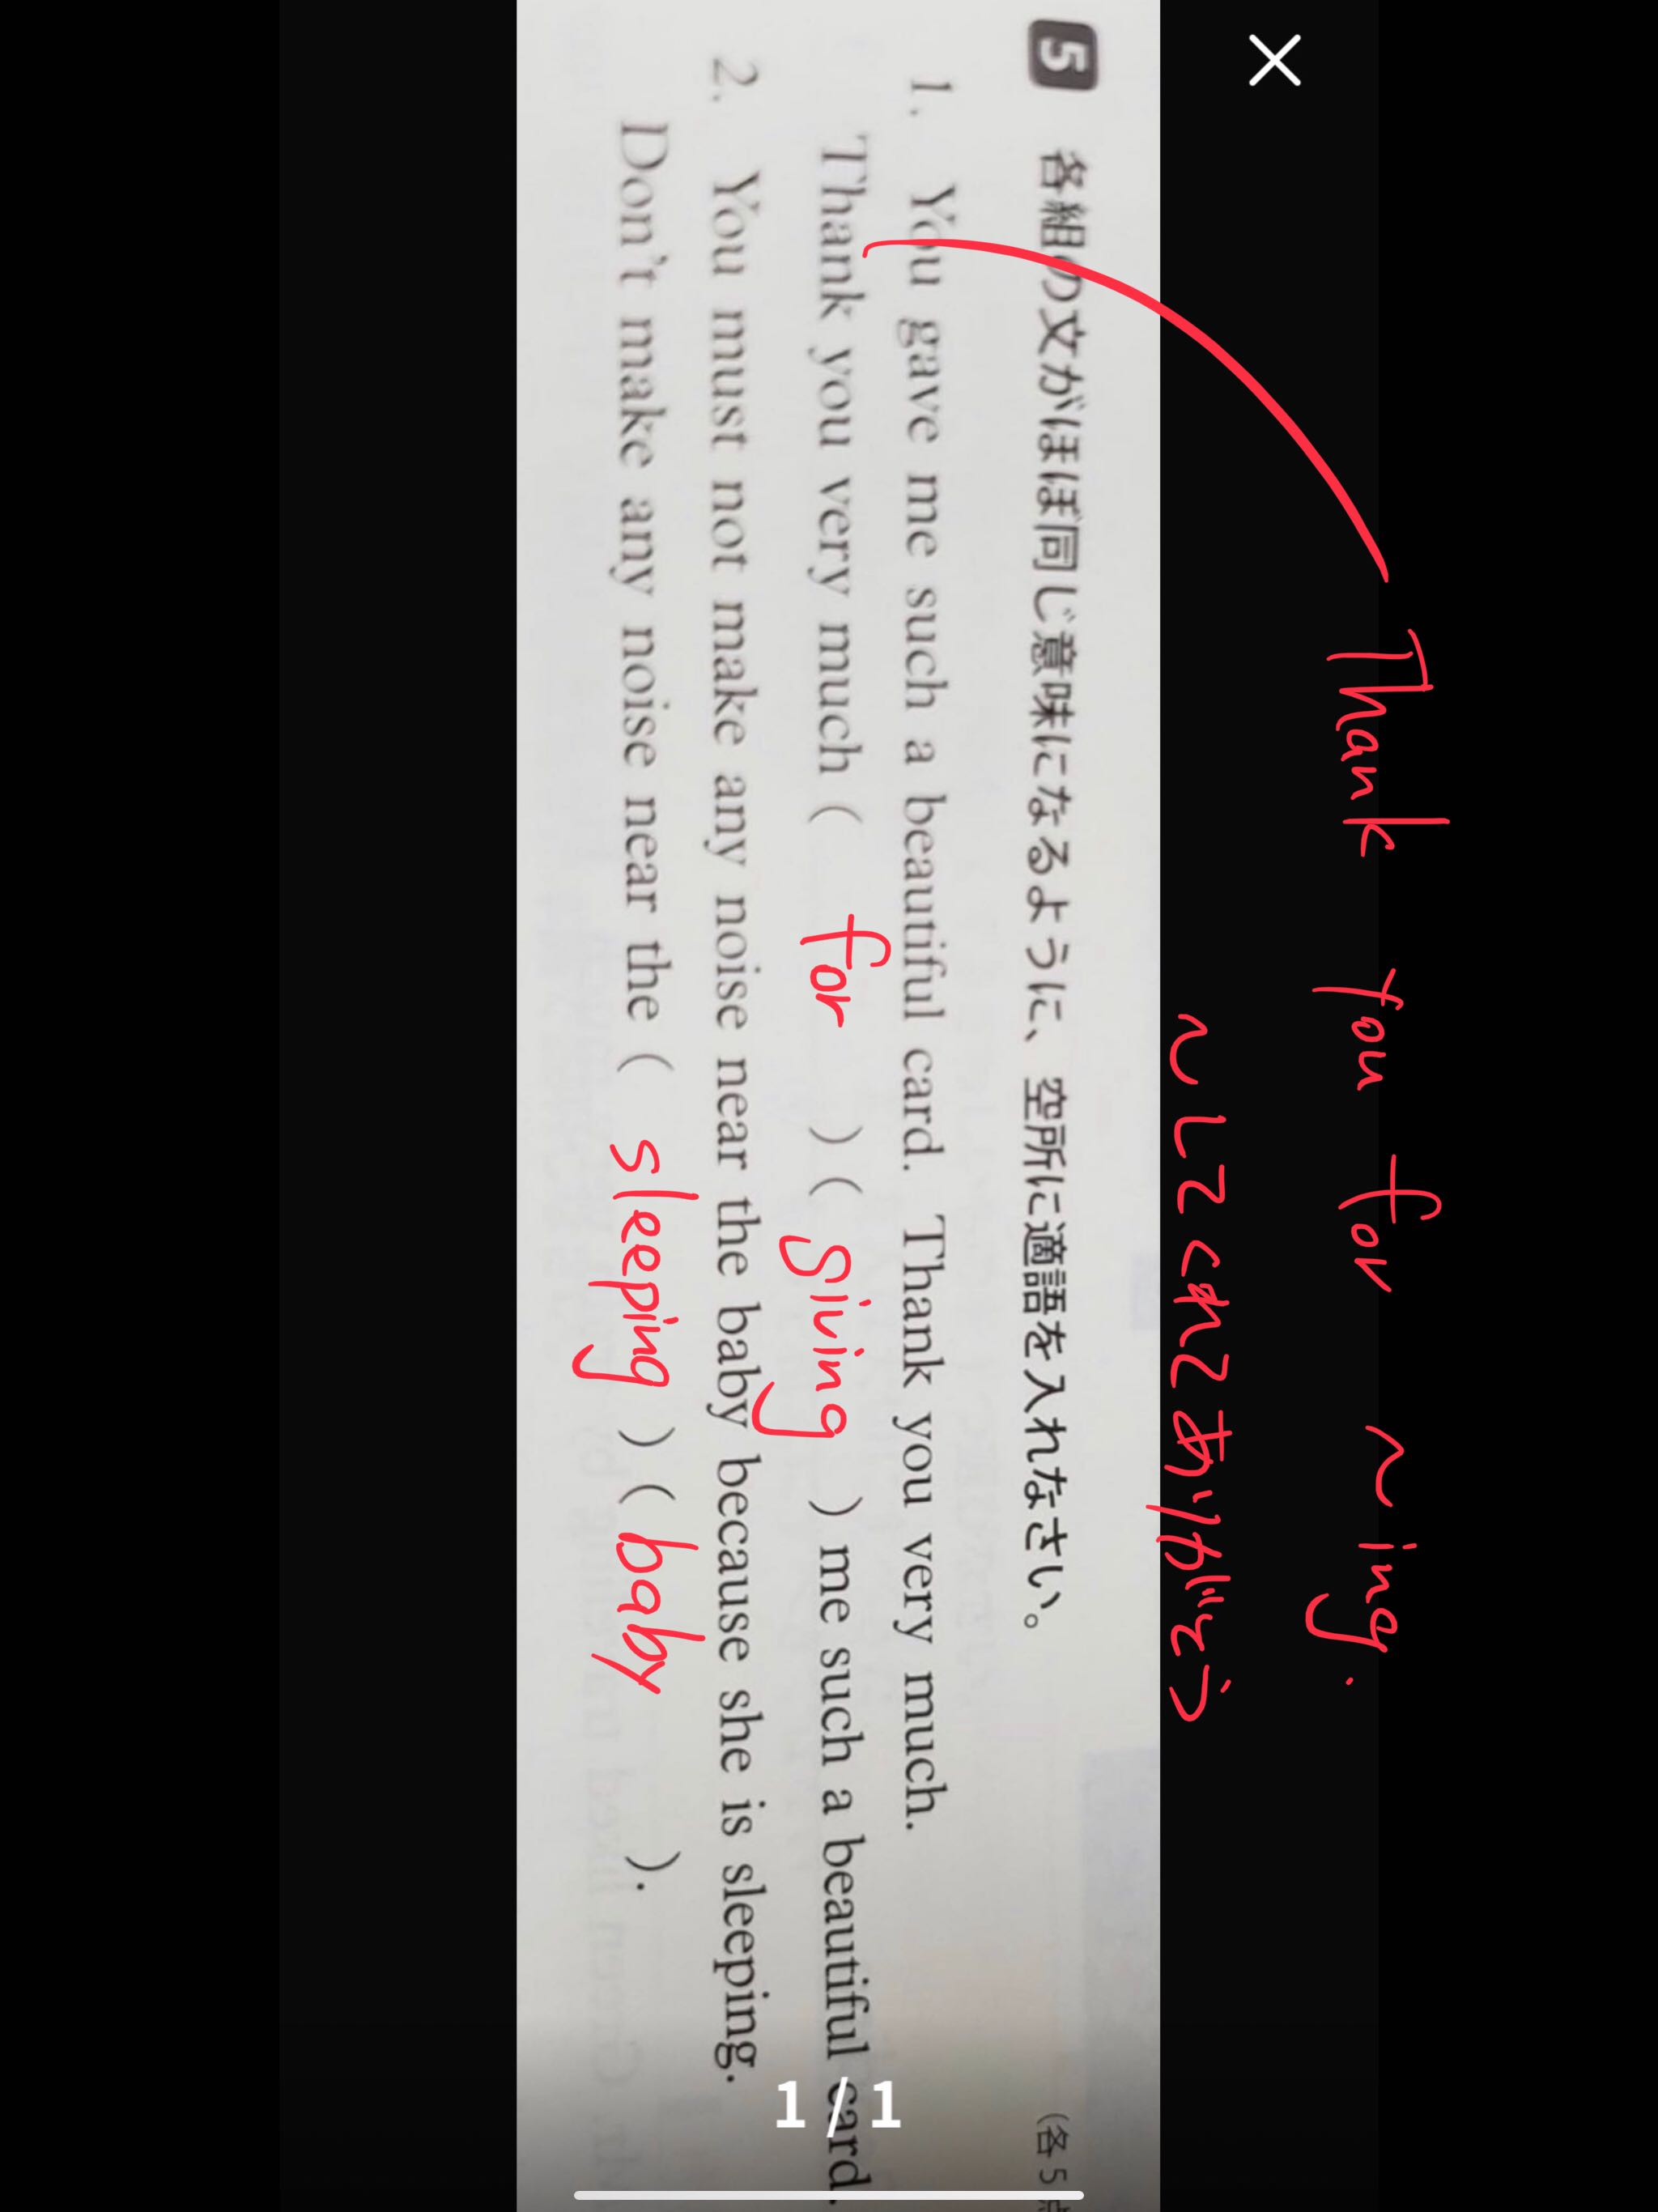 Thank you for ~ing.
~してくれてありがとう
5 各組の文がほぼ同じ意味になるように、空所に適語を入れなさい。 (各5
1. You gave me such a beautiful card. Thank you very much.
Thank you very much ( for ) ( giving ) me such a beautiful card.
2. You must not make any noise near the baby because she is sleeping.
Don't make any noise near the ( sleeping ) ( baby ).
1 / 1